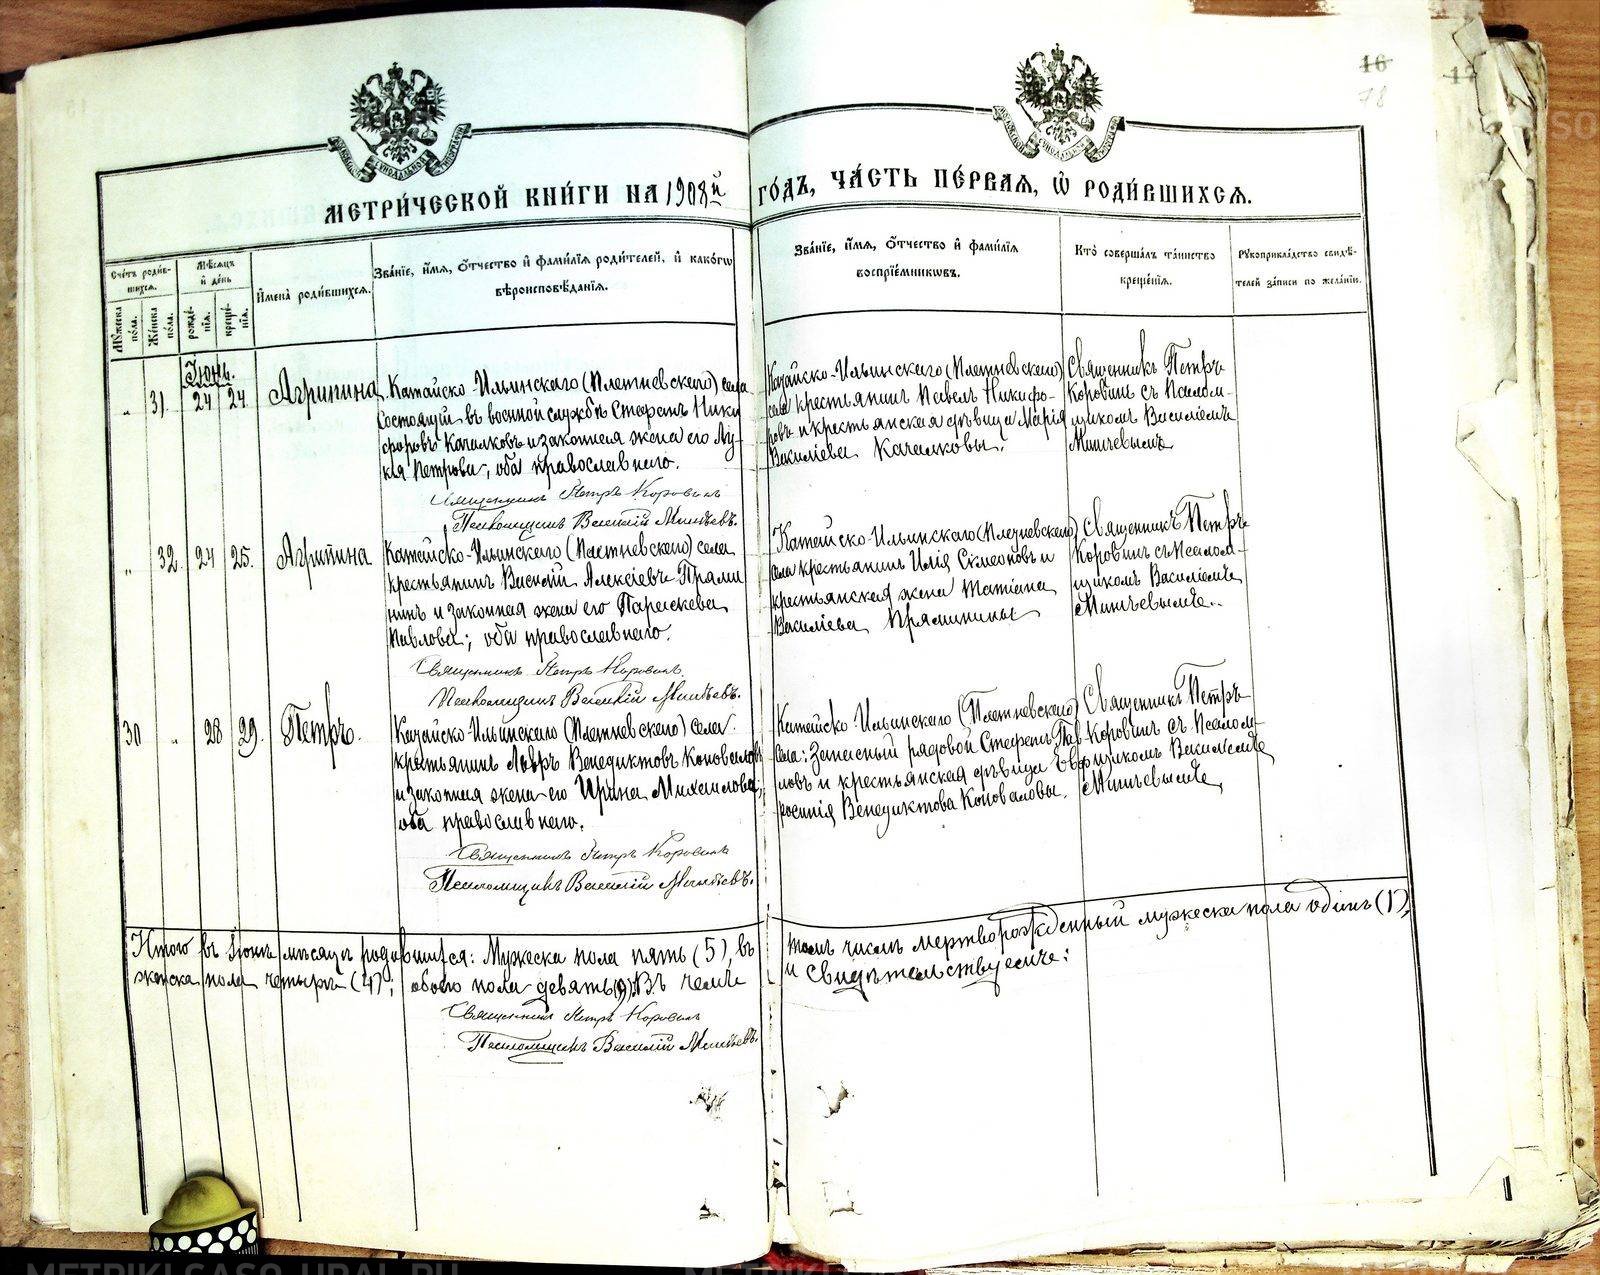 16
18
МЕТРИ́ЧЕСКОЙ КНИ́ГИ НА 1908й ГО́ДЪ, ЧА́СТЬ ПЕ́РВАѦ, Ѡ РОДИ́ВШИХСѦ.
Сче́тъ роди́в-
шихсѧ.
Мѣ́сѧцъ
и де́нь
Имена̀ роди́вшихсѧ.
Зва́нїе, и́мѧ, ѻ́тчество и фами́лїѧ роди́телей, и како́гѡ
вѣроисповѣ́данїѧ.
Зва́нїе, и́мѧ, ѻ́тчество и фами́лїѧ
воспрїе́мникѡвъ.
Кто̀ соверша́лъ та́инство
креще́нїѧ.
Рꙋкоприкла́дство свидѣ́-
телей за́писи по жела́нїю.
Мꙋжеска
по́ла.
Же́нска
по́ла.
рожде́-
нїѧ.
креще́-
нїѧ.
Іюнь.
" 31. 24 24 Агрипина
Катайско-Ильинскаго (Плетневскаго) села
состоящій въ военной службѣ Стефанъ Ники
форовъ Качалковъ и законная жена его Лу-
кія Петрова, оба православнаго.
Священникъ Петръ Коровинъ
Псаломщикъ Василій
Катайско-Ильинскаго (Плетневскаго)
села крестьянинъ Павелъ Никифо-
ровъ и крестьянская дѣвица Марія
Василіева Качалковы.
Священникъ Петръ
Коровинъ съ псалом-
щикомъ Василіемъ
" 32. 24 25. Агрипина
Катайско-Ильинскаго (Плетневскаго) села
крестьянинъ Василій Алексіевъ Прями
нинъ и законная жена его Параскева
Павлова; оба православнаго.
Священникъ Петръ Коровинъ
Псаломщикъ Василій
Катайско-Ильинскаго (Плетневскаго)
села крестьянинъ Илія Симеоновъ и
крестьянская жена Татіана
Василіева Пряминины
Священникъ Петръ
Коровинъ съ псалом-
щикомъ Василіемъ
30 " 28 29. Петръ.
Катайско-Ильинскаго (Плетневскаго) села
крестьянинъ Лавръ Венедиктовъ Коноваловъ
и законная жена его Ирина Михаилова;
оба православнаго.
Священникъ Петръ Коровинъ
Псаломщикъ Василій
Катайско-Ильинскаго (Плетневскаго)
села: запасный рядовой Стефанъ Пав
ловъ и крестьянская дѣвица Евф
росинія Венедиктова Коноваловы.
Священникъ Петръ
Коровинъ съ псалом-
щикомъ Василіемъ
Итого въ Іюнѣ мѣсяцѣ родившихся: Мужеска пола пять (5), въ
женска пола четыре (4); обоего пола девять (9). Въ
томъ числѣ мертворожденный мужеска пола одинъ (1),
и свидѣтельствуемъ:
Священникъ Петръ Коровинъ
Псаломщикъ Василій